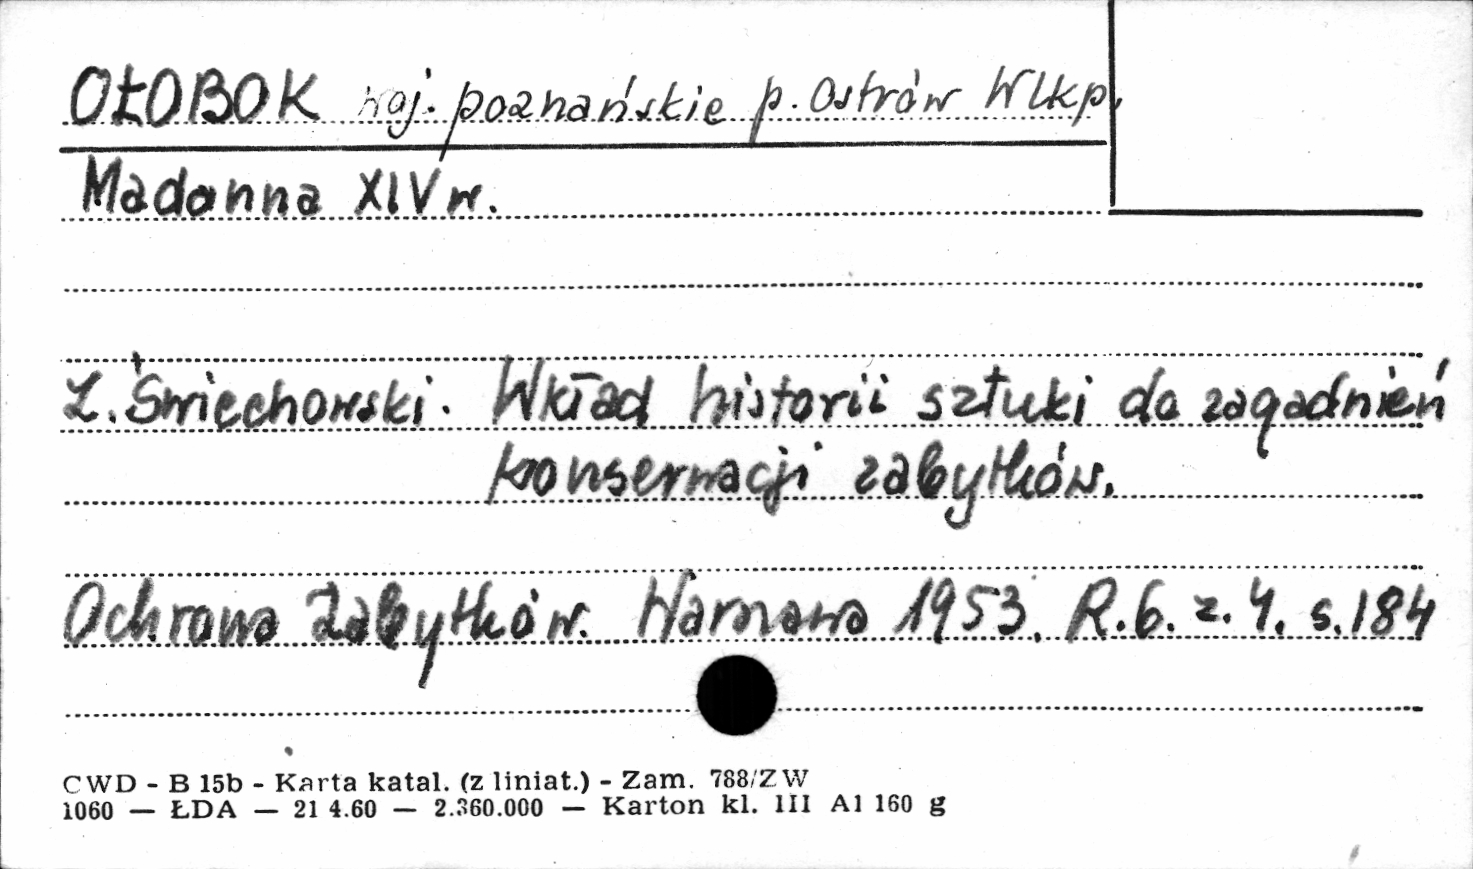 OŁOBOK woj. poznańskie p. Ostrów Wlkp.
Madonna XIV w.
Z. Świechowski. Wkład historii sztuki do zagadnień
konserwacji zabytków.
Ochrona Zabytków. Warszawa 1953. R.6. z. 4. s. 184
CWD - B 15b - Karta katal. (z liniat.) - Zam. 788/ZW
1060 — ŁDA — 21 4.60 — 2.360.000 — Karton kl. III A1 160 g